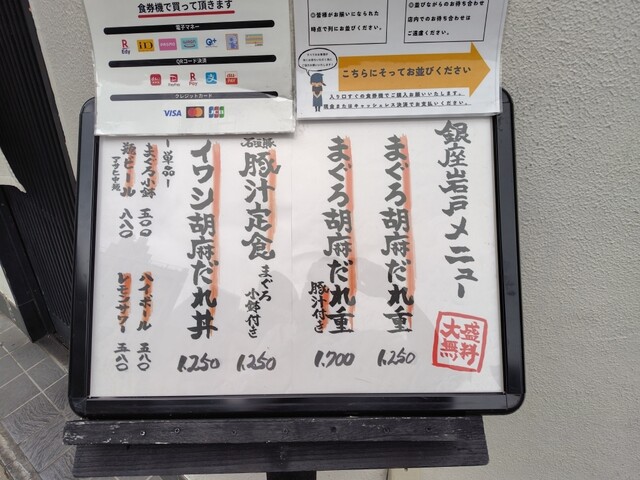 食券機で買って頂きます
電子マネー
Edy
iD
QRコード決済
クレジットカード
VISA
JCB
◎皆様がお揃いになられた
時点で列にお並びください。
◎並びながらのお待ち合わせ
店内でのお待ち合わせは
ご遠慮ください。
こちらにそってお並びください
入り口すぐの食券機でご購入お願いいたします。
現金またはキャッシュレス決済でお支払いください。
銀座岩戸メニュー
大盛
無料
まぐろ胡麻だれ重
1.250
まぐろ胡麻だれ重
豚汁付き
1.700
豚汁定食
まぐろ
小鉢付き
1.250
イワシ胡麻だれ丼
1.250
ー単品ー
まぐろ小鉢 五〇〇
瓶ビール 八八〇
アサヒ中瓶
ハイボール 五八〇
レモンサワー 五八〇